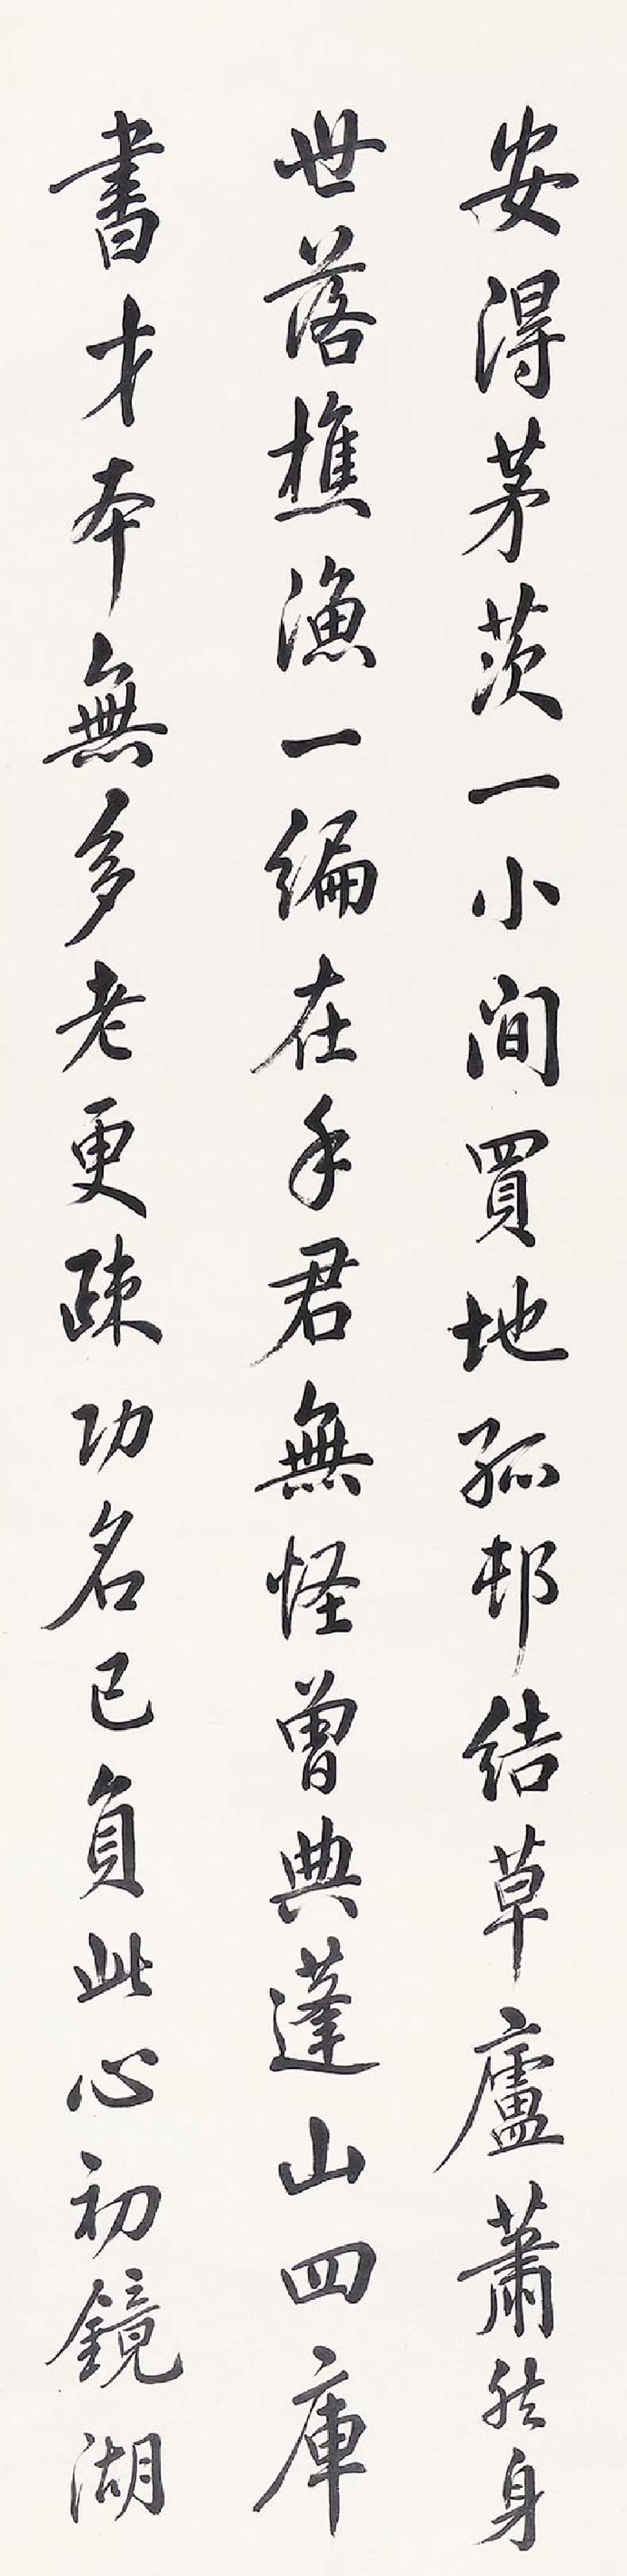 安得茅茨一小间買地孤邨結草廬蕭然身
世落樵漁一編在手君無怪曾典蓬山四庫
書才本無多老更疎功名已負此心初鏡湖